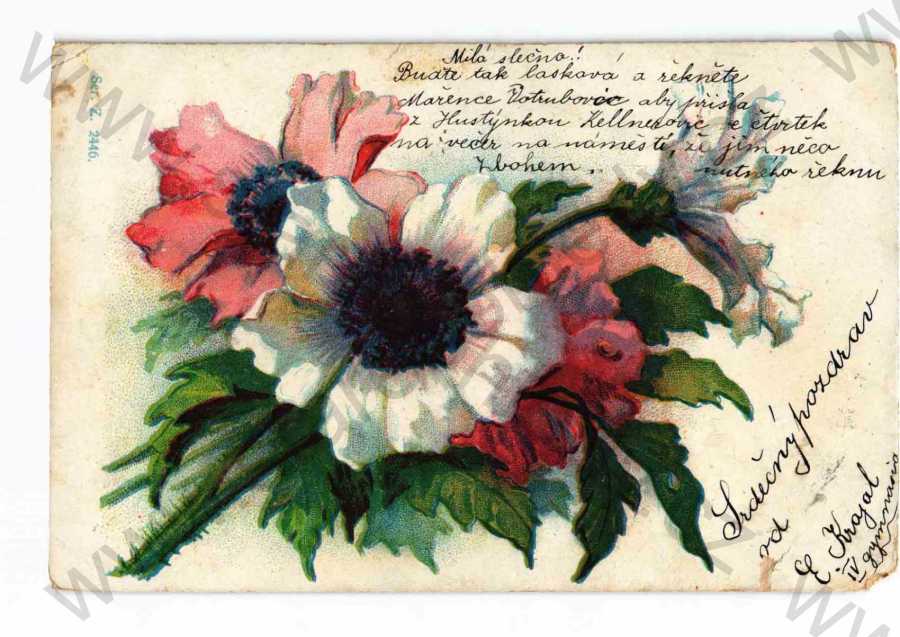 Milá slečno!
Buďte tak laskavá a řekněte
Mařence Votrubovic aby přišla
z Hustýnkou Kellnerovic ve čtvrtek
na večer na náměstí, že jim něco
Zbohem. nutného řeknu
Srdečný pozdrav
od
E. Krajal
IV gymnasia
Ser. Z. 2446.